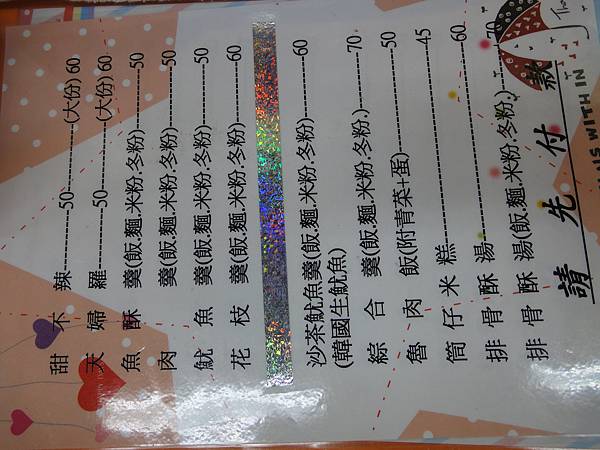 甜不辣----------50----------(大份) 60
天婦羅----------50----------(大份) 60
魚酥羹(飯.麵.米粉.冬粉)----------50
肉羹(飯.麵.米粉.冬粉)----------50
魷魚羹(飯.麵.米粉.冬粉)----------50
花枝羹(飯.麵.米粉.冬粉)----------60
沙茶魷魚羹(飯.麵.米粉.冬粉)----------60
(韓國生魷魚)
綜合羹(飯.麵.米粉.冬粉.)----------70
魯肉飯(附青菜+蛋)----------50
筒仔米糕----------45
排骨酥湯----------60
排骨酥湯(飯.麵.米粉.冬粉.)----------70
請先付款
IS WITH IN